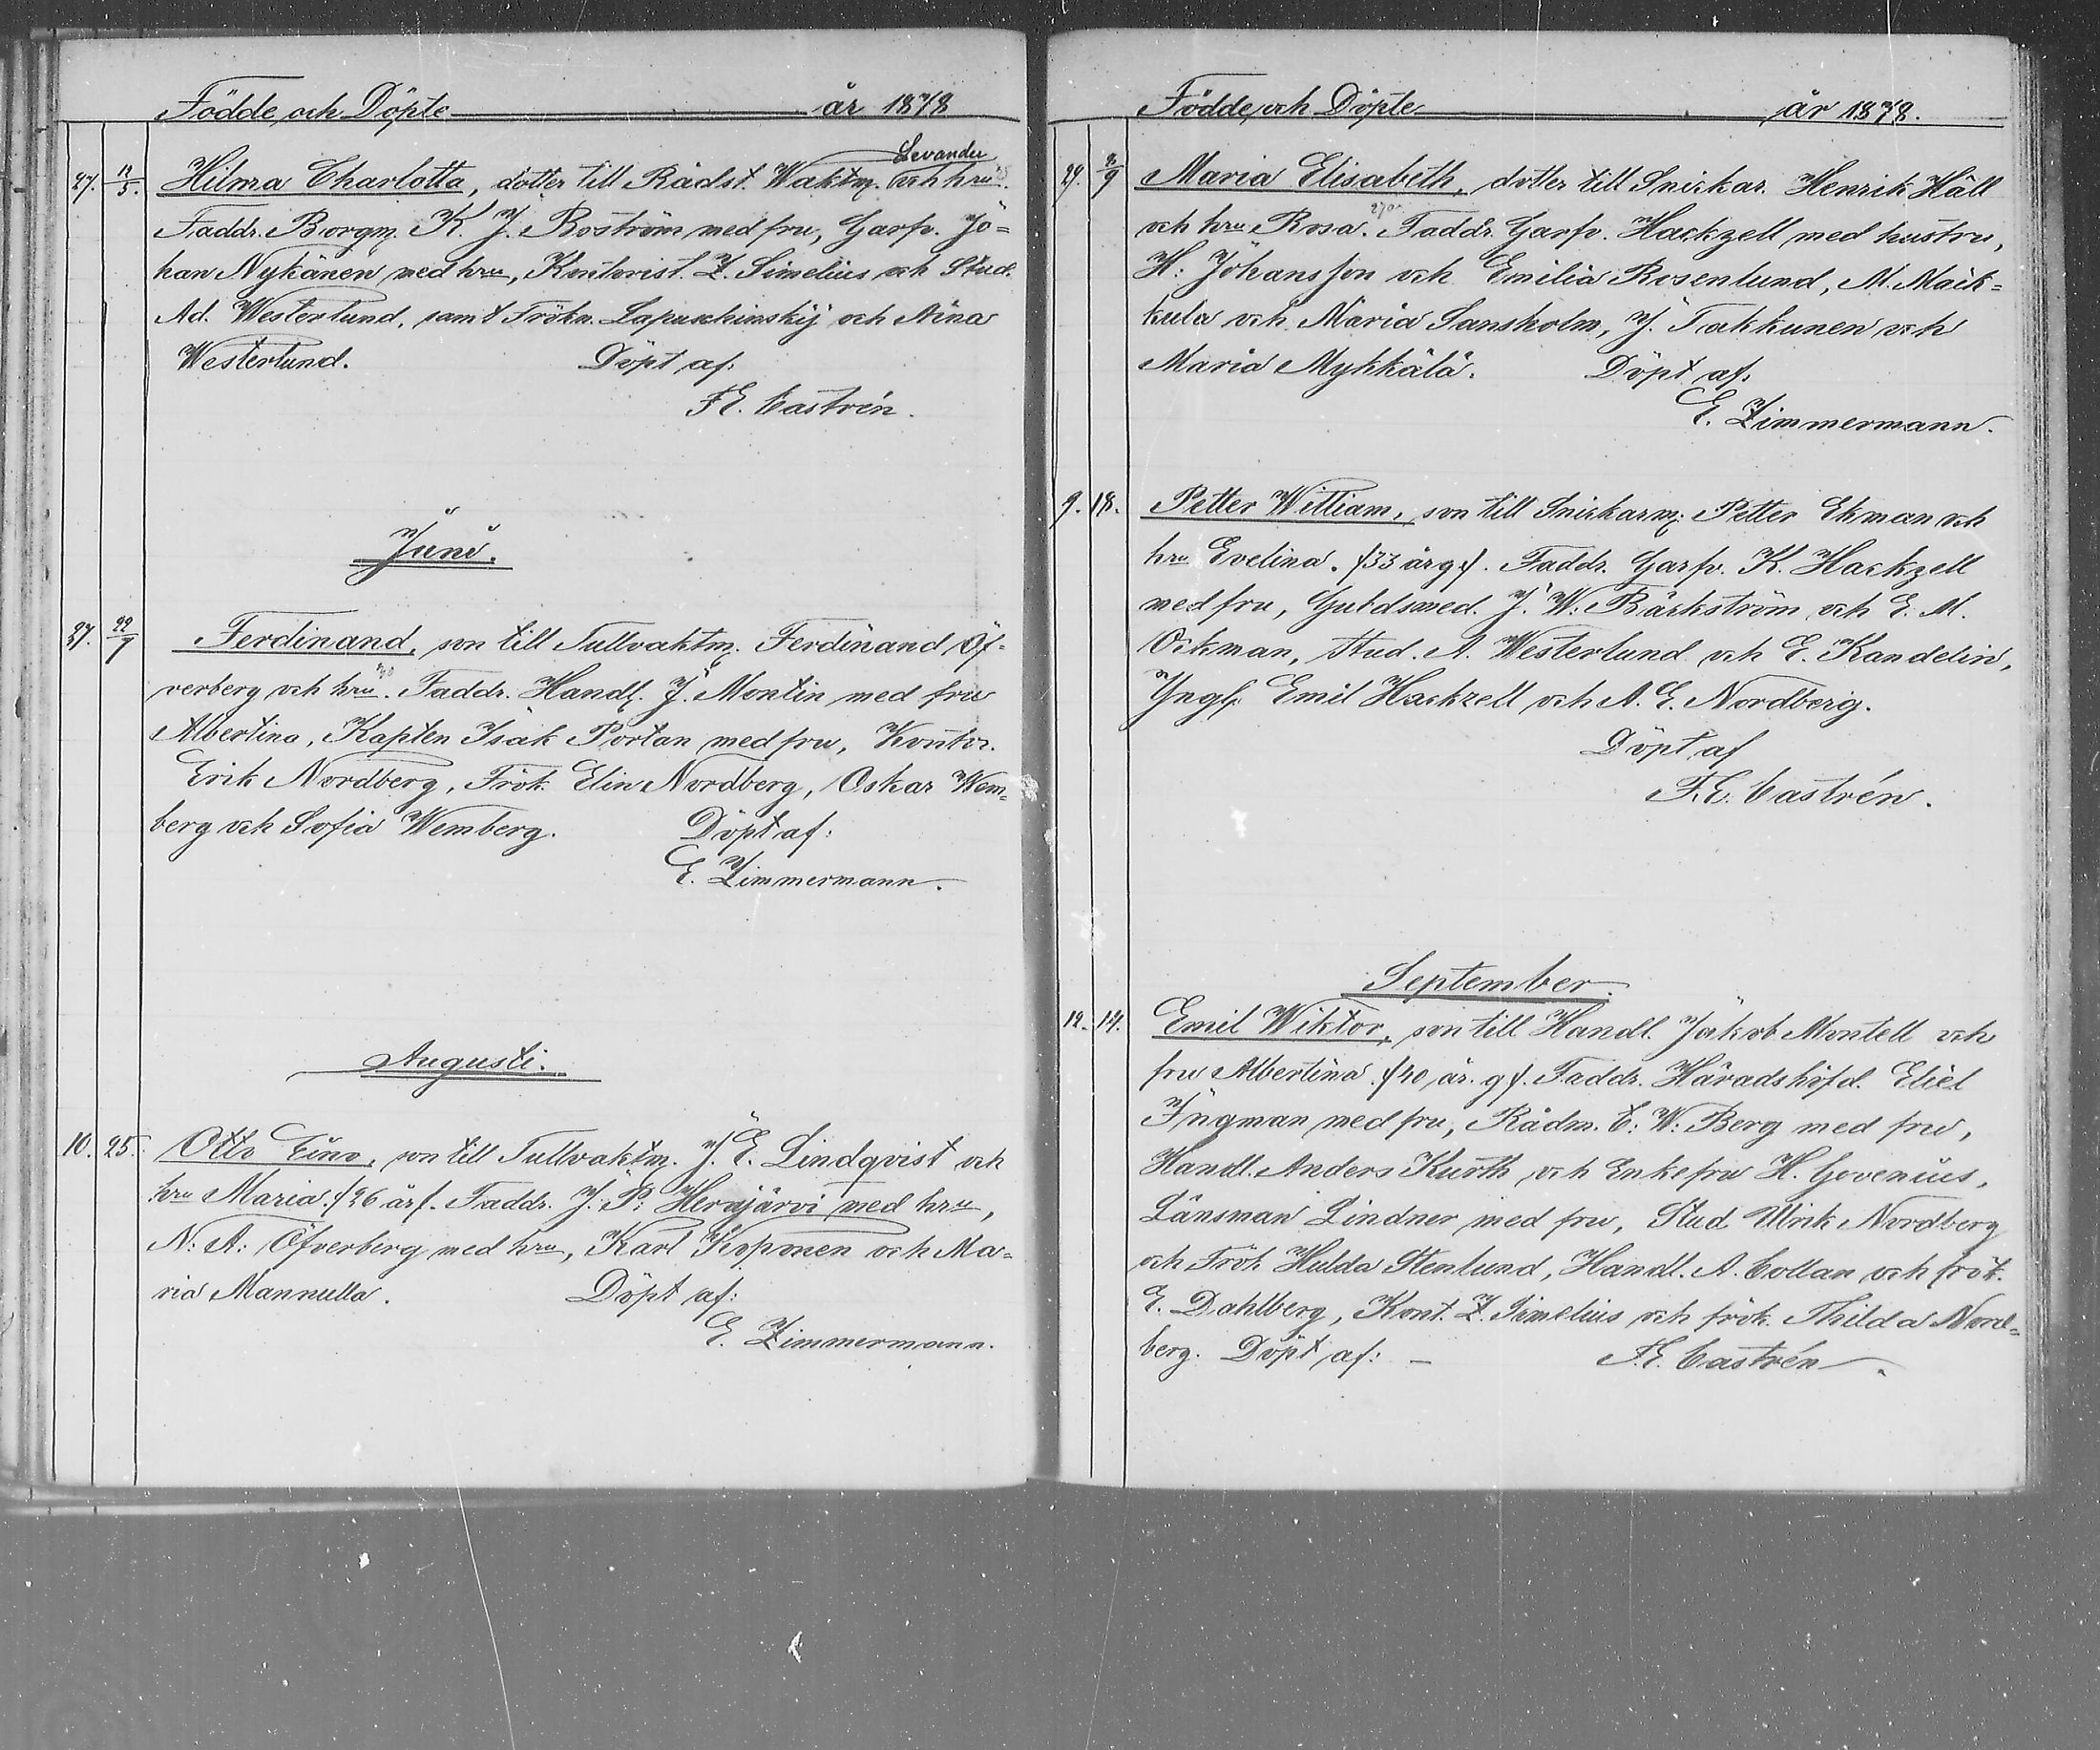 Födde och Döpte år 1878
Levander
27. 12/5. Hilma Charlotta, dotter till Rådst. Waktm. och hru.
Faddr. Borgm. K. J. Boström med fru, Garfv. Jo=
han Nykänen med hru, Kontorist. Z. Simelius och Stud.
Ad. Westerlund, samt Frökn. Lapuschinskij och Aina
Westerlund. Döpt af:
F.E. Castrén.
Juni.
27. 22/7 Ferdinand, son till Tullvaktm. Ferdinand Öf-
verberg och hru. Faddr. Handl. J. Montin med fru
Albertina, Kapten Isak Portan med fru, Kontor.
Erik Nordberg, Frök. Elin Nordberg, Oskar Wem=
berg och Sofia Wemberg. Döpt af:
E. Zimmermann.
Augusti.
10. 25. Otto Eino, son till Tullvaktm. J. E. Lindqvist och
hru Maria. /26 år/. Faddr. J. P: Herajärvi med hru,
N: A: Öfverberg med hru, Karl Koponen och Ma=
ria Mannulla. Döpt af:
E. Zimmermann.
Födde och Döpte år 1878.
29. /9 Maria Elisabeth, dotter till Snickar. Henrik Häll
och hru Rosa. Faddr. Garfv. Hackzell med hustru,
H: Johansson och Emilia Rosenlund, M. Mäck=
kula och Maria Sansholm, J. Takkunen och
Maria Mykkälä. Döpt af:
E. Zimmermann.
9. 18. Petter William, son till Snickarm: Petter Ekman och
hru Evelina. /33 år g./. Faddr. Garfv. K. Hackzell
med fru, Guldsmed. J. W. Bäckström och E. M.
Öckman, Stud. A. Westerlund och E. Kandelin,
Yngl. Emil Hackzell och A. E. Nordberg.
Döpt af
F.E. Castrén.
September.
12. 14. Emil Wiktor, son till Handl. Jakob Montell och
fru Albertina. /40 år. g/. Faddr. Häradshöfd. Eliel
Ingman med fru, Rådm. C: W: Berg med fru,
Handl. Anders Kurth och Enkefru H. Govenius,
Länsman Lindner med fru, Stud Ulrik Nordberg
och Frök Hulda Stenlund, Handl. A. Collan och frök.
E. Dahlberg, Kont. Z. Simelius och frök. Thilda Nord=
berg. Döpt af: — F.E. Castrén.